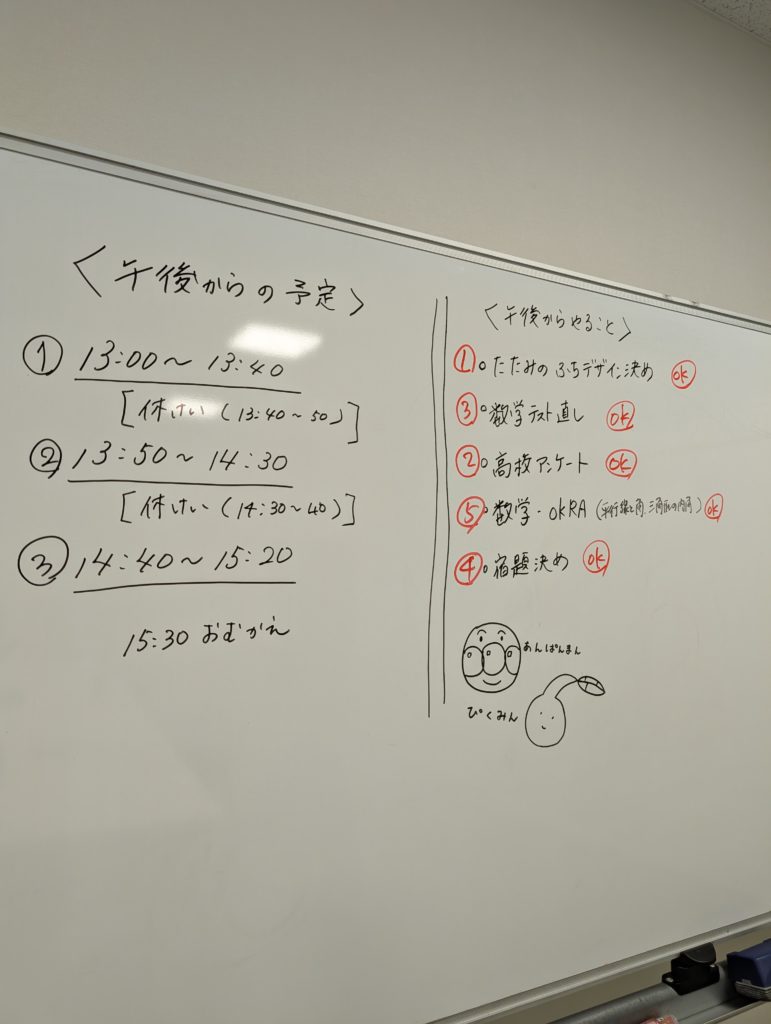 〈午後からの予定〉
① 13:00～13:40
[休けい (13:40～50)]
② 13:50～14:30
[休けい (14:30～40)]
③ 14:40～15:20
15:30 おむかえ
〈午後からやること〉
①。たたみのふちデザイン決め ok
③。数学テスト直し ok
②。高校アンケート ok
⑤。数学・okRA (平行線と角、三角形の内角) ok
④。宿題決め ok
あんぱんまん
ぴくみん